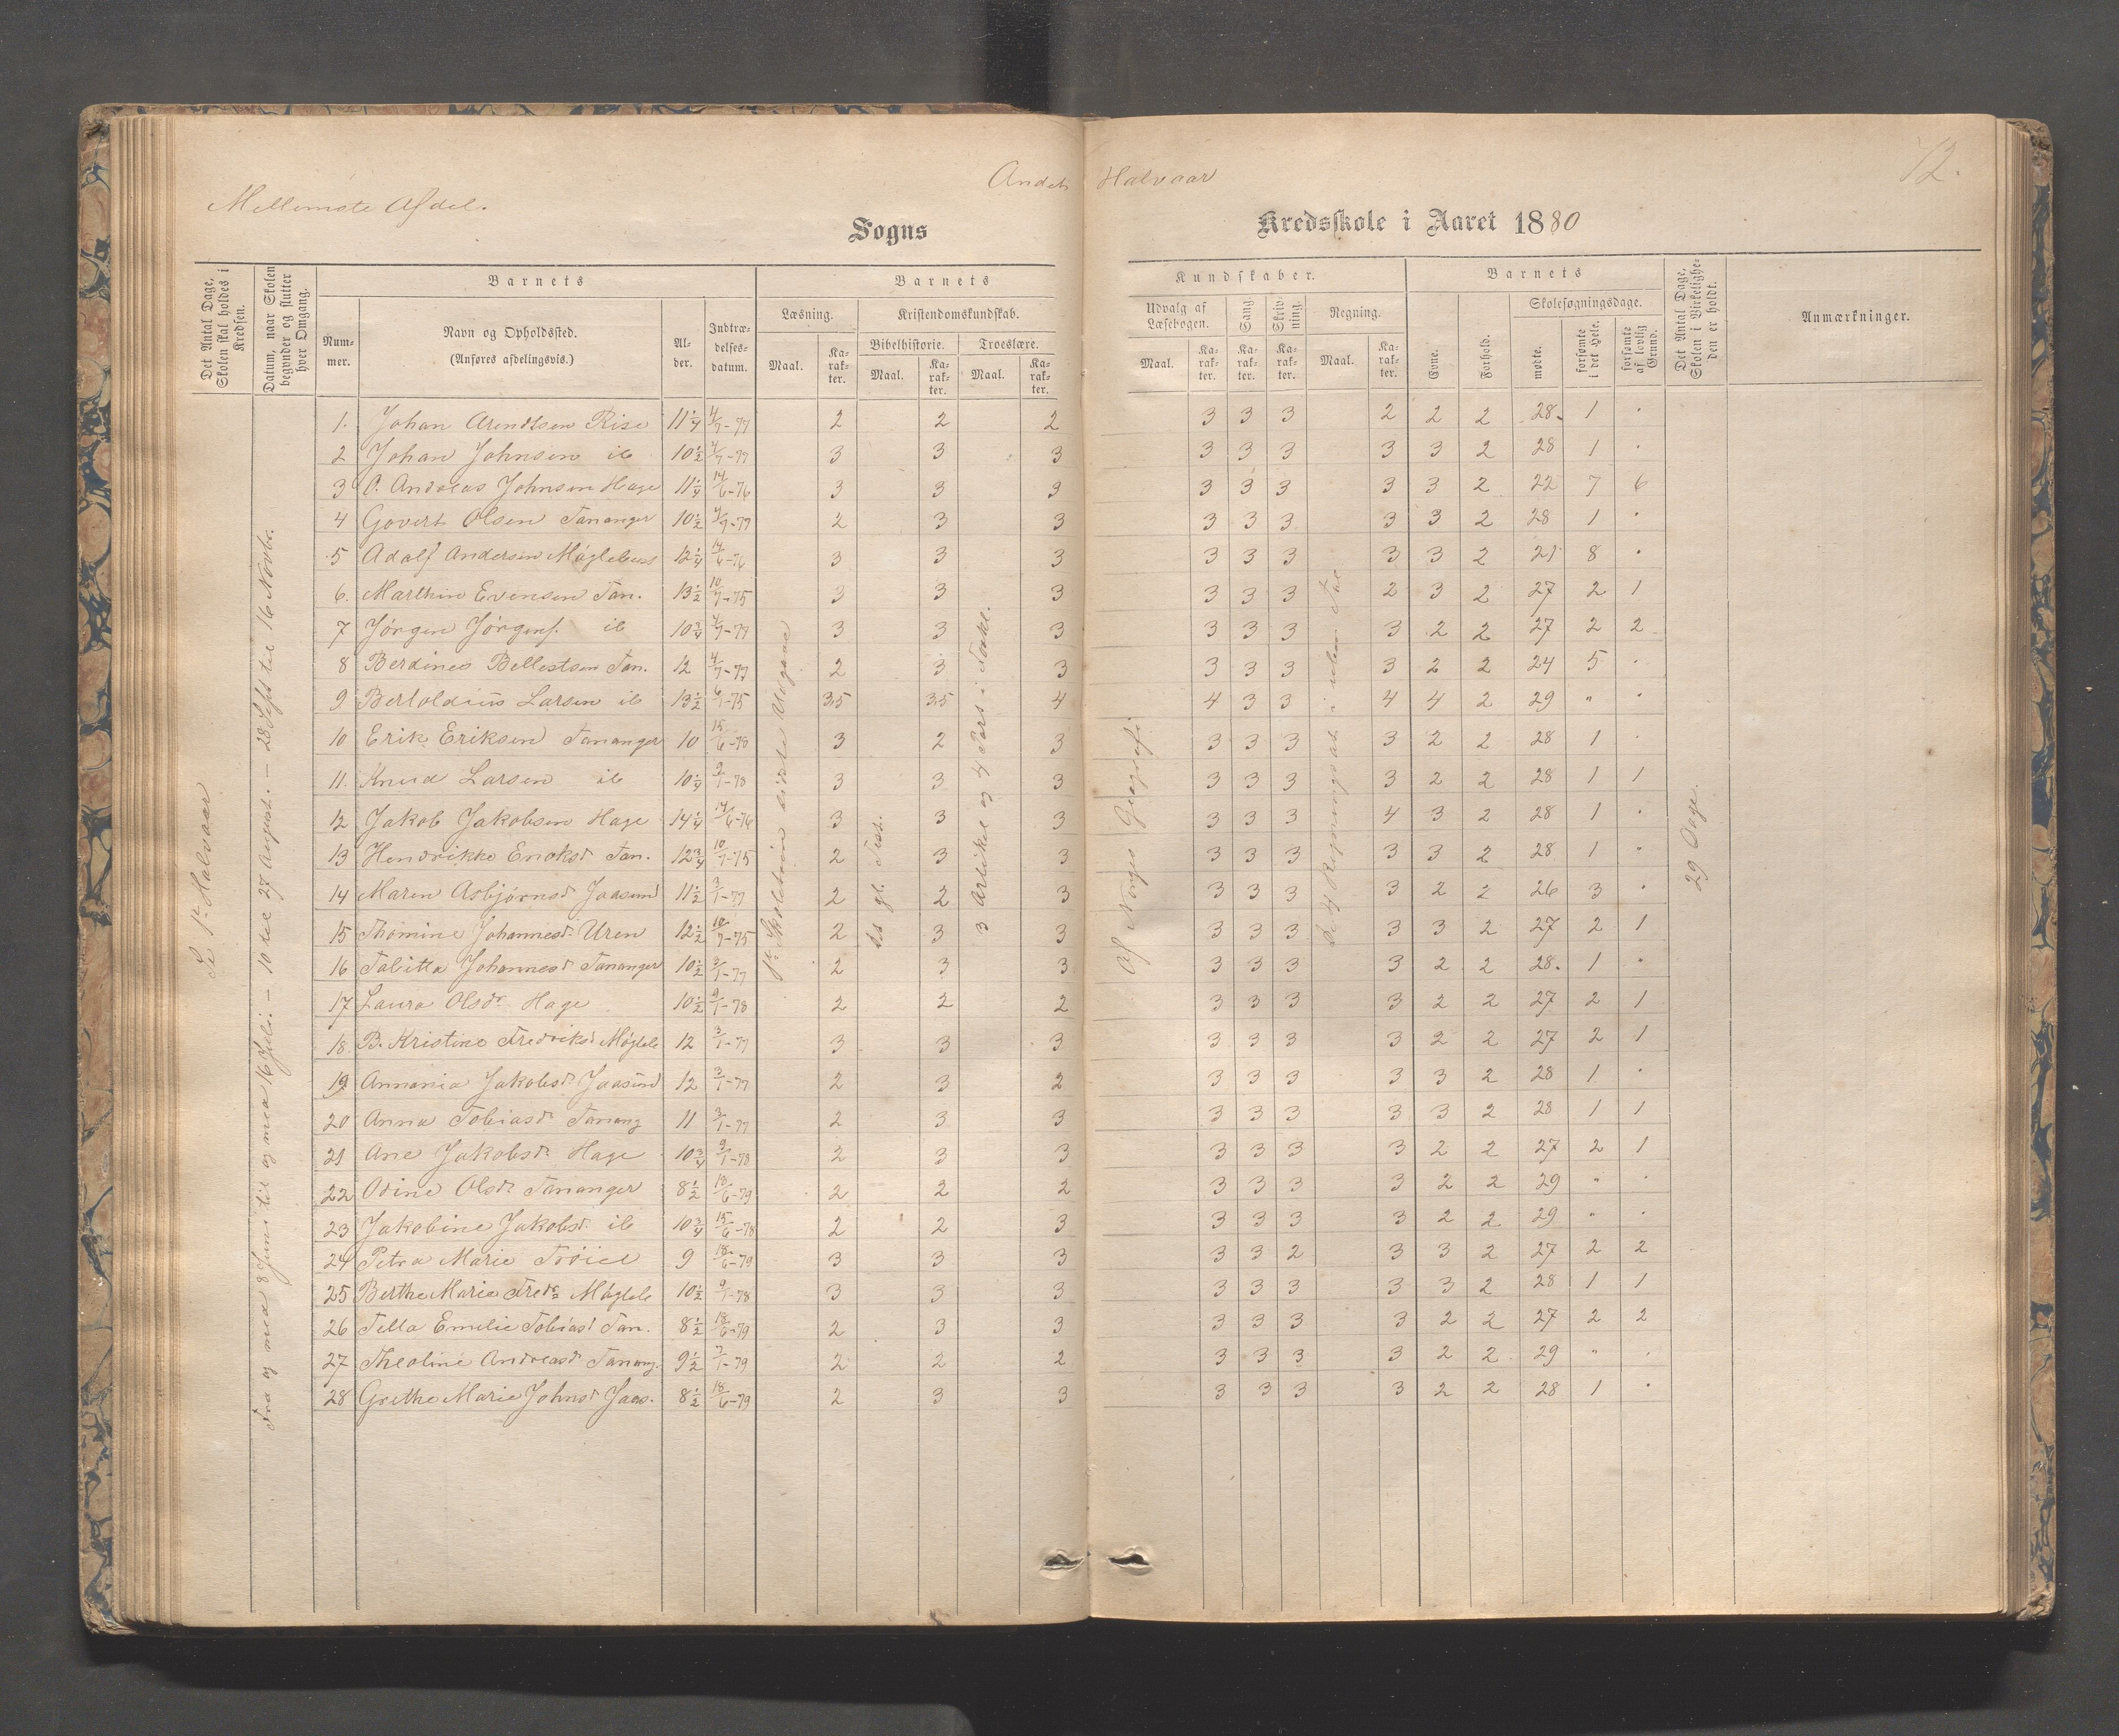 Andet Halvaar
72.
Mellemste Afdel.
Sogns Kredsskole i Aaret 1880
Det Antal Dage, Skolen skal holdes i Kredsen.
Datum, naar Skolen begynder og slutter hver Omgang.
Barnets
Nummer.
Navn og Opholdssted.
(Anføres afdelingsvis.)
Alder.
Indtrædelsesdatum.
Barnets Kundskaber.
Læsning.
Maal.
Karakter.
Kristendomskundskab.
Bibelhistorie.
Maal.
Karakter.
Troeslære.
Maal.
Karakter.
Udvalg af Læsebogen.
Maal.
Karakter.
Sang.
Karakter.
Skrivning.
Karakter.
Regning.
Maal.
Karakter.
Barnets
Evne.
Forhold.
Skolesøgningsdage.
mødte.
forsømte i det Hele.
forsømte af lovlig Grund.
Det Antal Dage, Skolen i Virkeligheden er holdt.
Anmærkninger.
Se 1ste Halvaar
Fra og med 8 Juni til og med 16 Juli. – 10 til 27 August. – 28 Sept til 16 Novbr.
3 Artikel og 4 Part i Forkl.
Af Norges Geografi
De 4 Regningsart. i
29 Dage.
1. Johan Arendtsen Rise 11 1/4 4/7-77 2 2 2 3 3 3 2 2 2 28 1 .
2 Johan Johnsen ib 10 1/2 4/7-77 3 3 3 3 3 3 3 3 2 28 1 .
3 O. Andreas Johnsen Hage 11 1/4 14/6-76 3 3 3 3 3 3 3 3 2 22 7 6
4 Govert Olsen Tananger 10 1/2 4/7-77 2 3 3 3 3 3 3 3 2 28 1 .
5 Adolf Andersen 12 1/4 14/6-76 3 3 3 3 3 3 3 3 2 21 8 .
6. Marthin Evensen Tan. 13 1/2 10/7-75 3 3 3 3 3 3 2 3 2 27 2 1
7 Jörgen Jörgens. ib 10 3/4 4/7-77 3 3 3 3 3 3 3 2 2 27 2 2
8 Berdines Tan. 12 4/7-77 2 3 3 3 3 3 3 2 2 24 5 .
9 Bertoldius Larsen ib 13 1/2 6/1-75 3,5 3,5 4 4 3 3 4 4 2 29 " "
10 Erik Eriksen Tananger 10 15/6-78 3 2 3 3 3 3 3 2 2 28 1 .
11. Knud Larsen ib 10 1/4 9/1-78 3 3 3 3 3 3 3 2 2 28 1 1
12 Jakob Jakobsen Hage 14 1/4 14/6-76 3 3 3 3 3 3 4 3 2 28 1 .
13 Hendrikke Enoksd Tan. 12 3/4 10/7-75 2 3 3 3 3 3 3 3 2 28 1 "
14 Maren Asbjörnsd Jaasund 11 1/2 3/1-77 2 2 3 3 3 3 3 2 2 26 3 .
15 Thomine Johannesd. Uren 12 1/2 10/7-75 2 3 3 3 3 3 3 3 2 27 2 1
16 Tabitta Johannesd Tananger 10 1/2 3/1-77 2 3 3 3 3 3 3 2 2 28. 1 .
17 Laura Olsdr Hage 10 1/2 9/1-78 2 2 2 3 3 3 3 2 2 27 2 1
18. B. Kristine Fredriksd Møgleb 12 3/1-77 3 3 3 3 3 3 3 2 2 27 2 1
19 Annania Jakobsd. Jaasund 12 3/1-77 2 3 2 3 3 3 3 3 2 28 1 .
20 Anna Tobiasdr Tanang 11 3/1-77 2 3 3 3 3 3 3 3 2 28 1 1
21 Ane Jakobsdr Hage 10 3/4 9/1-78 2 3 3 3 3 3 3 2 2 27 2 1
22 Odine Olsdr Tananger 8 1/2 18/6-79 2 2 2 3 3 3 3 2 2 29 " .
23 Jakobine Jakobsd. ib 10 3/4 15/6-78 2 2 3 3 3 3 3 2 2 29 " .
24 Petra Marie 9 18/6-79 3 3 3 3 3 2 3 3 2 27 2 2
25 Berthe Marie Fredr. Møgleb 10 1/2 9/1-78 3 3 3 3 3 3 3 3 2 28 1 1
26 Tella Emilie Tobiasd Tan. 8 1/2 18/6-79 2 3 3 3 3 3 3 2 2 27 2 2
27 Theoline Andreasd. Tanang. 9 1/2 7/1-79 2 2 2 3 3 3 3 2 2 29 " .
28 Grethe Marie Johnsd Jaas. 8 1/2 18/6-79 2 3 3 3 3 3 3 2 2 28 1 .